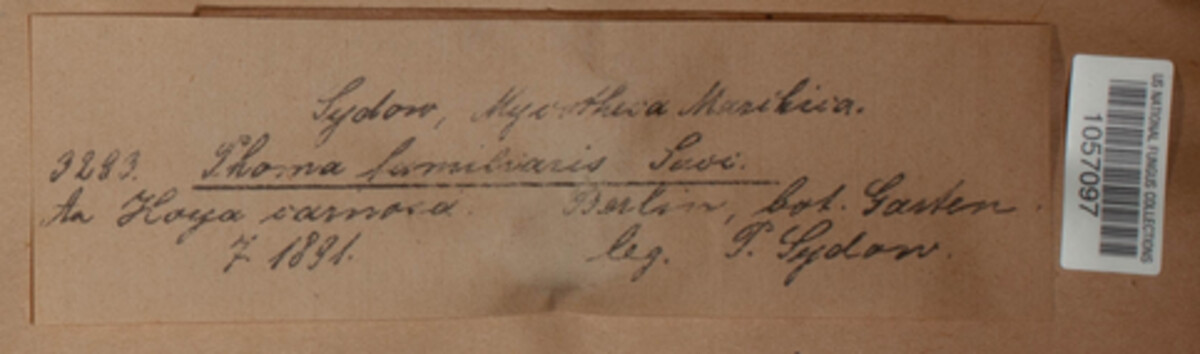 Sydow, Mycotheca Marchica.
3283. Phoma familiaris Sacc.
An Hoya carnosa. Berlin, bot. Garten.
7. 1891. leg. P. Sydow.
US NATIONAL FUNGUS COLLECTIONS
1057097